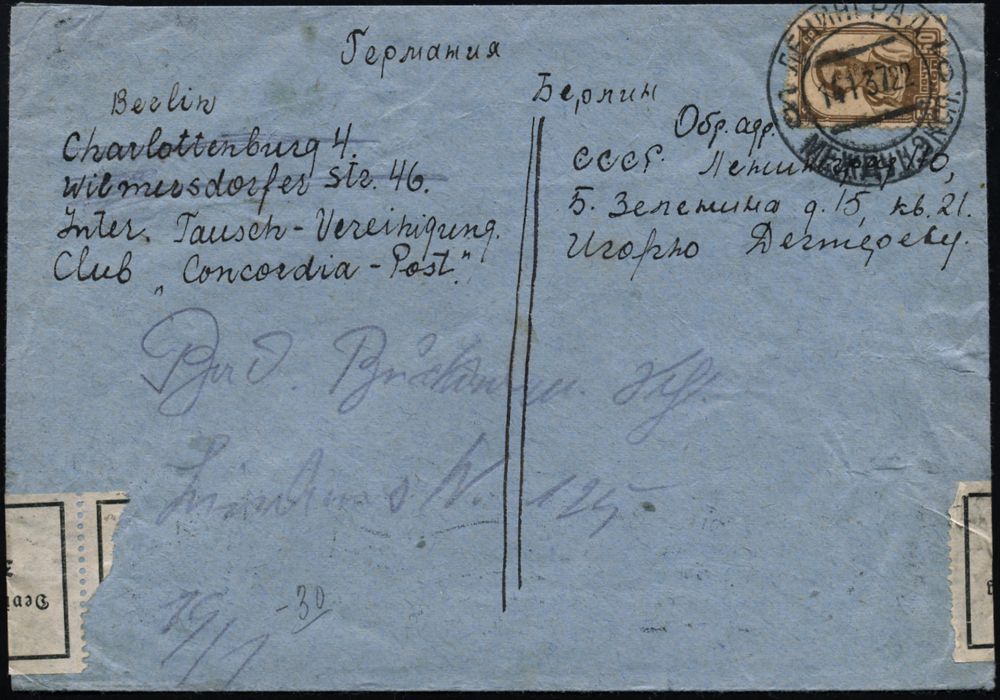 Германия
Berlin
Charlottenburg 4.
Wilmersdorfer Str. 46.
Inter. Tausch-Vereinigung.
Club „Concordia-Post."
Берлин
Обр. адр.
СССР. Ленинград 70,
Б. Зеленина д. 15, кв. 21.
Игорю Дегтереву.
ЛЕНИНГРАД
14 1 37 22
Bad.
125
19/1
-30
Devi